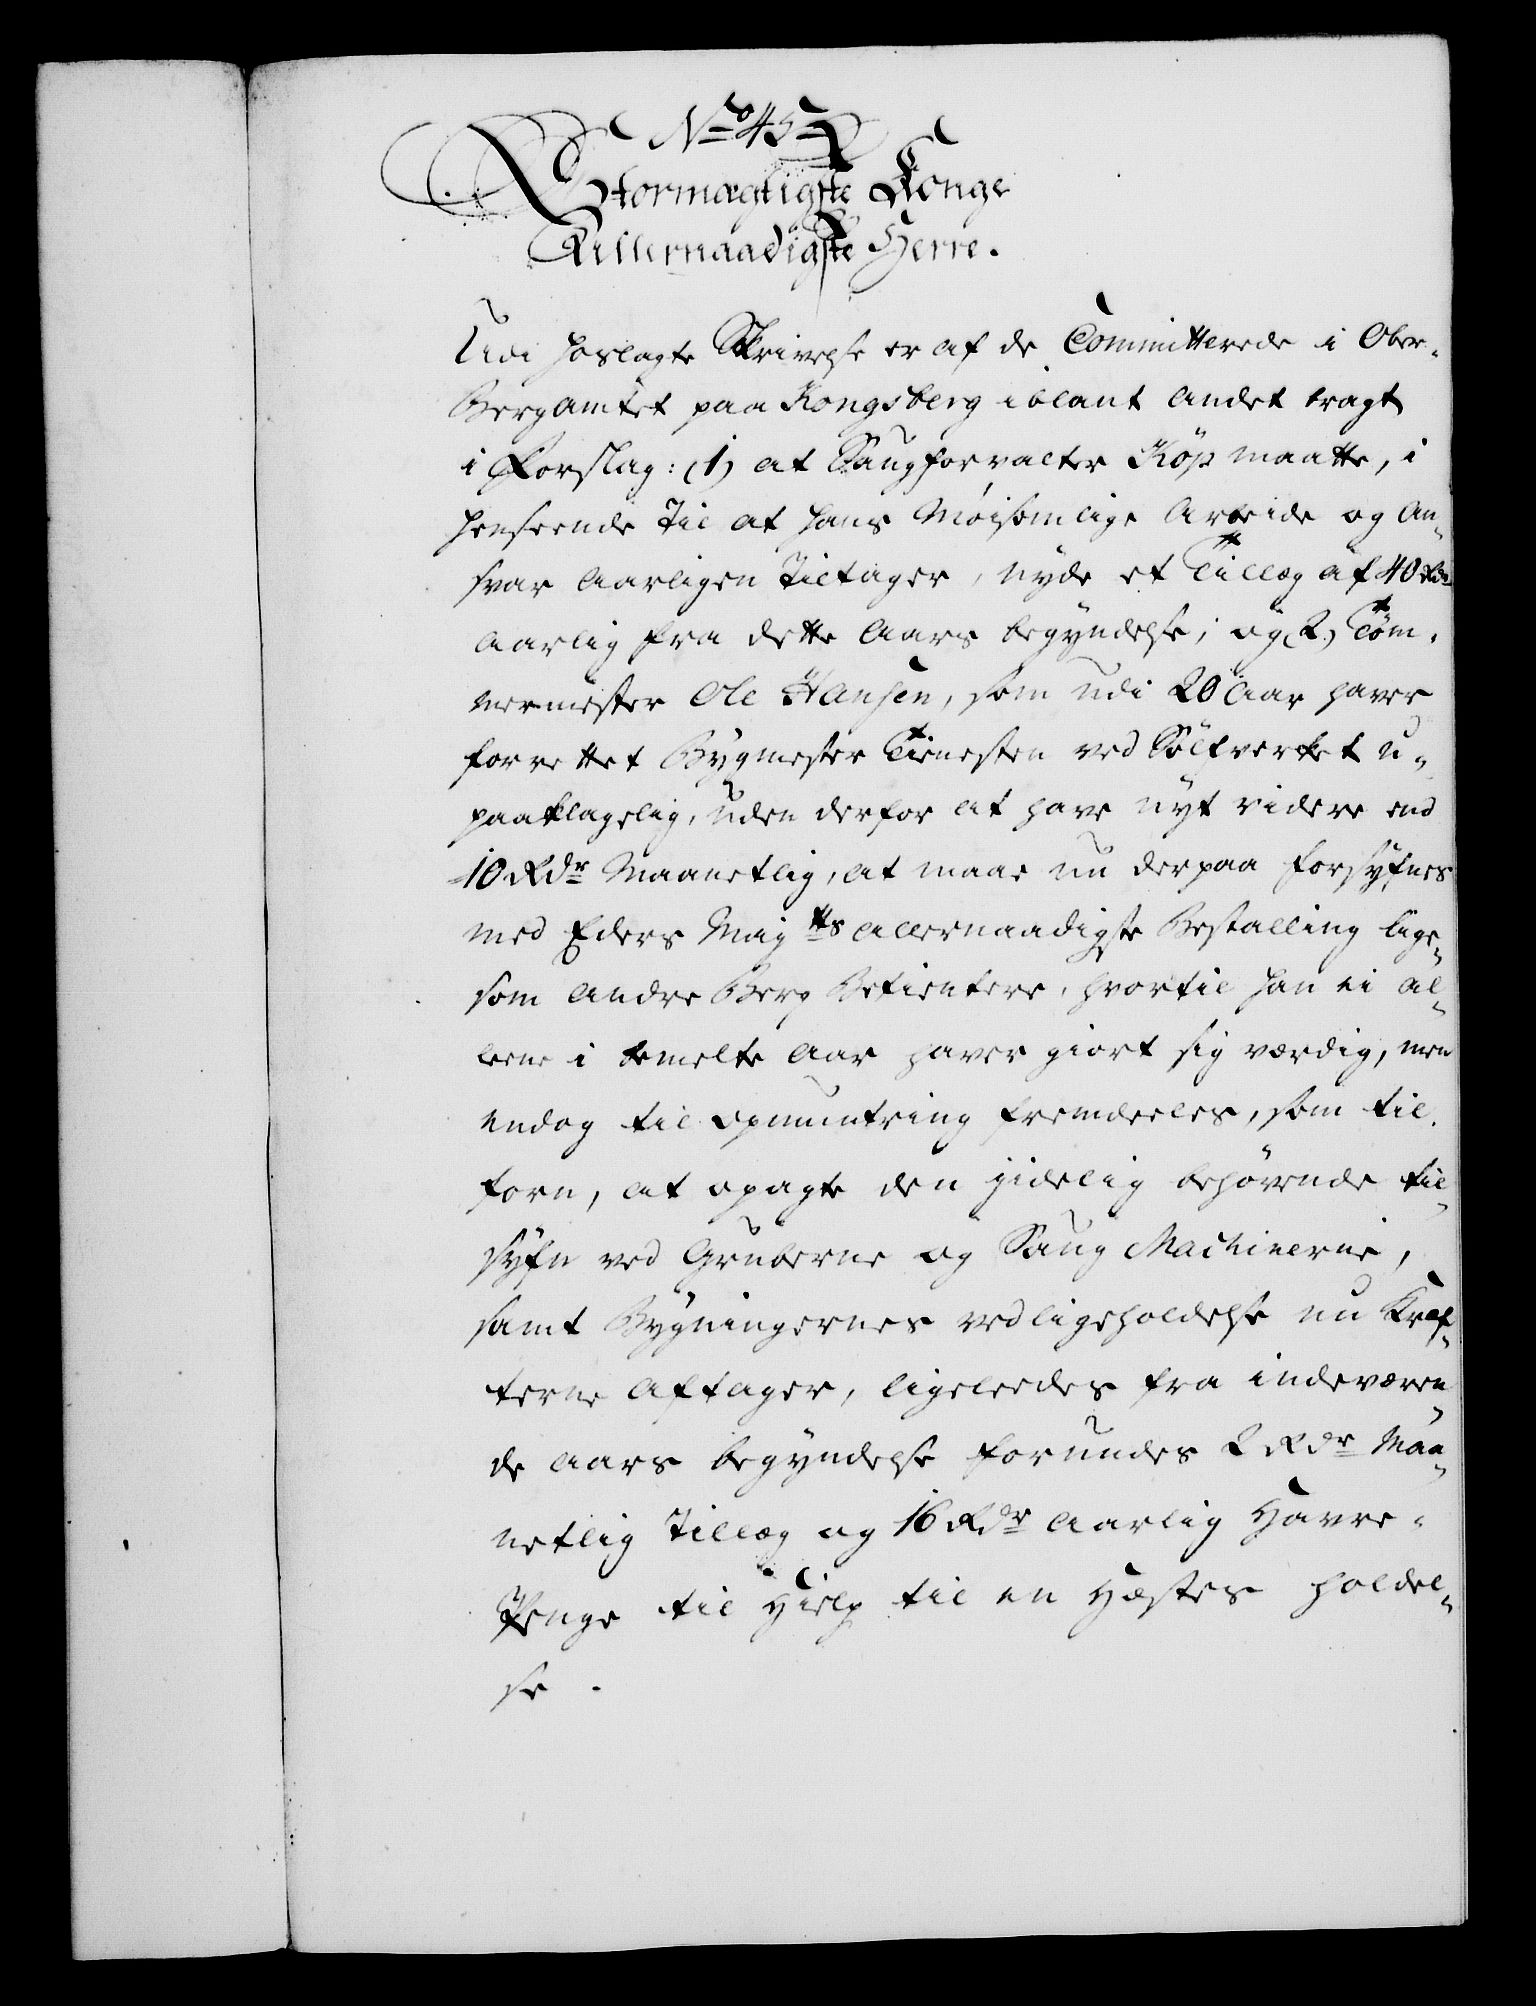 No 45
Stormægtigste Konge
Allernaadigste Herre.
Udi hoslagte Skrivelse er af de Committerede i Ober-
Bergamtet paa Kongsberg iblant andet bragt
i Forslag: (1) at Saugforvalter Köp maatte, i
henseende til at hans Möisomlige Arbeide og An-
svar Aarligen tiltager, nyde et Tillæg af 40 Rdr
Aarlig fra dette Aars begyndelse; og 2) Töm-
mermester Ole Hansen, som udi 20 Aar haver
forrettet Bygmester Tienesten ved Sölfverket u-
paaklagelig, uden derfor at have nyt videre end
10 Rdr Maanetlig, at maae nu derpaa forsyfnes
med Eders Majtts allernaadigste Bestalling lige-
som andre Berg Betientere, hvortil han ei al-
lene i bemelte Aar haver giort sig værdig, men
endog til opmuntring fremdeeles, som til-
forn, at opagte den jidelig behövende til-
syfn ved Gruberne og Saug Machinerne,
samt Bygningernes vedligeholdelse nu Kræf-
terne aftager, ligeleedes fra indeværen-
de Aars begyndelse forundes 2 Rdr Maa-
netlig Tillæg og 16 Rdr Aarlig Havre-
Penge til Hielp til en Hæstes holdel-
se.